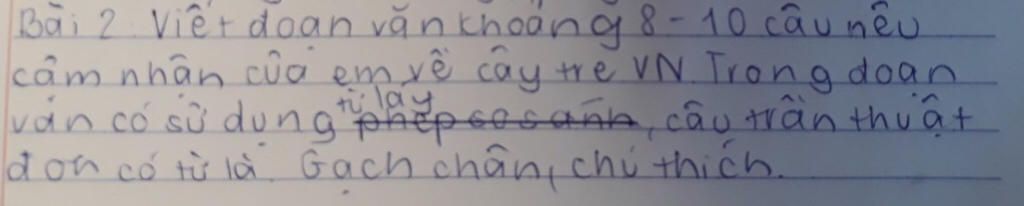 Bài 2. Viết đoạn văn khoảng 8-10 câu nêu
cảm nhận của em về cây tre VN. Trong đoạn
từ láy
văn có sử dụng phép so sánh, câu trần thuật
đơn có từ là. Gạch chân, chú thích.